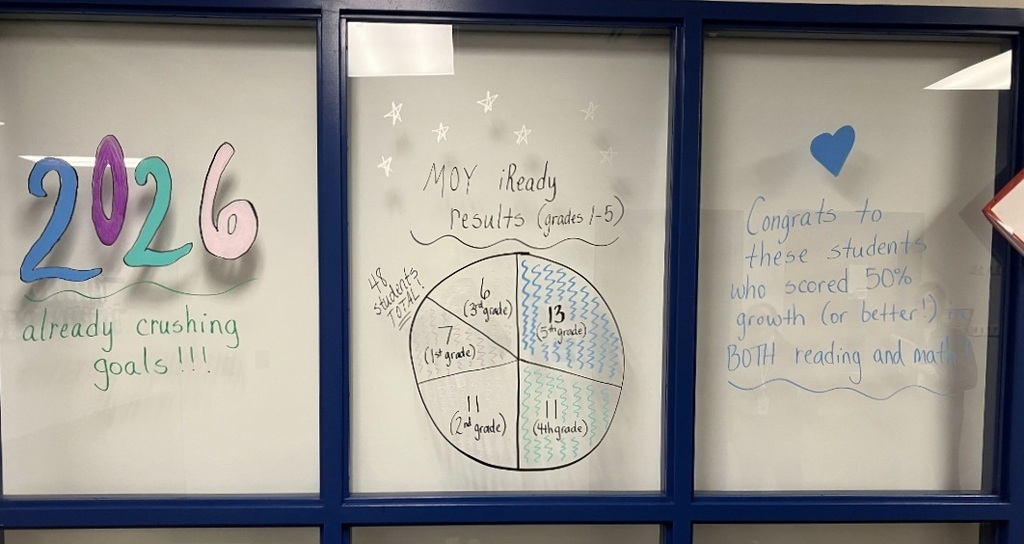 2026
already crushing
goals!!!
MOY iReady
results (grades 1-5)
48
students
TOTAL!
6
(3rd grade)
13
(5th grade)
7
(1st grade)
11
(2nd grade)
11
(4th grade)
Congrats to
these students
who scored 50%
growth (or better!) in
BOTH reading and math!